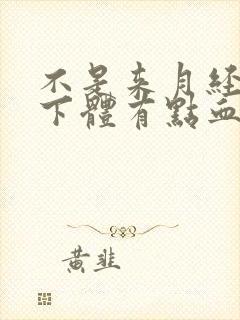 不是來月經
下體有點血
黃韭